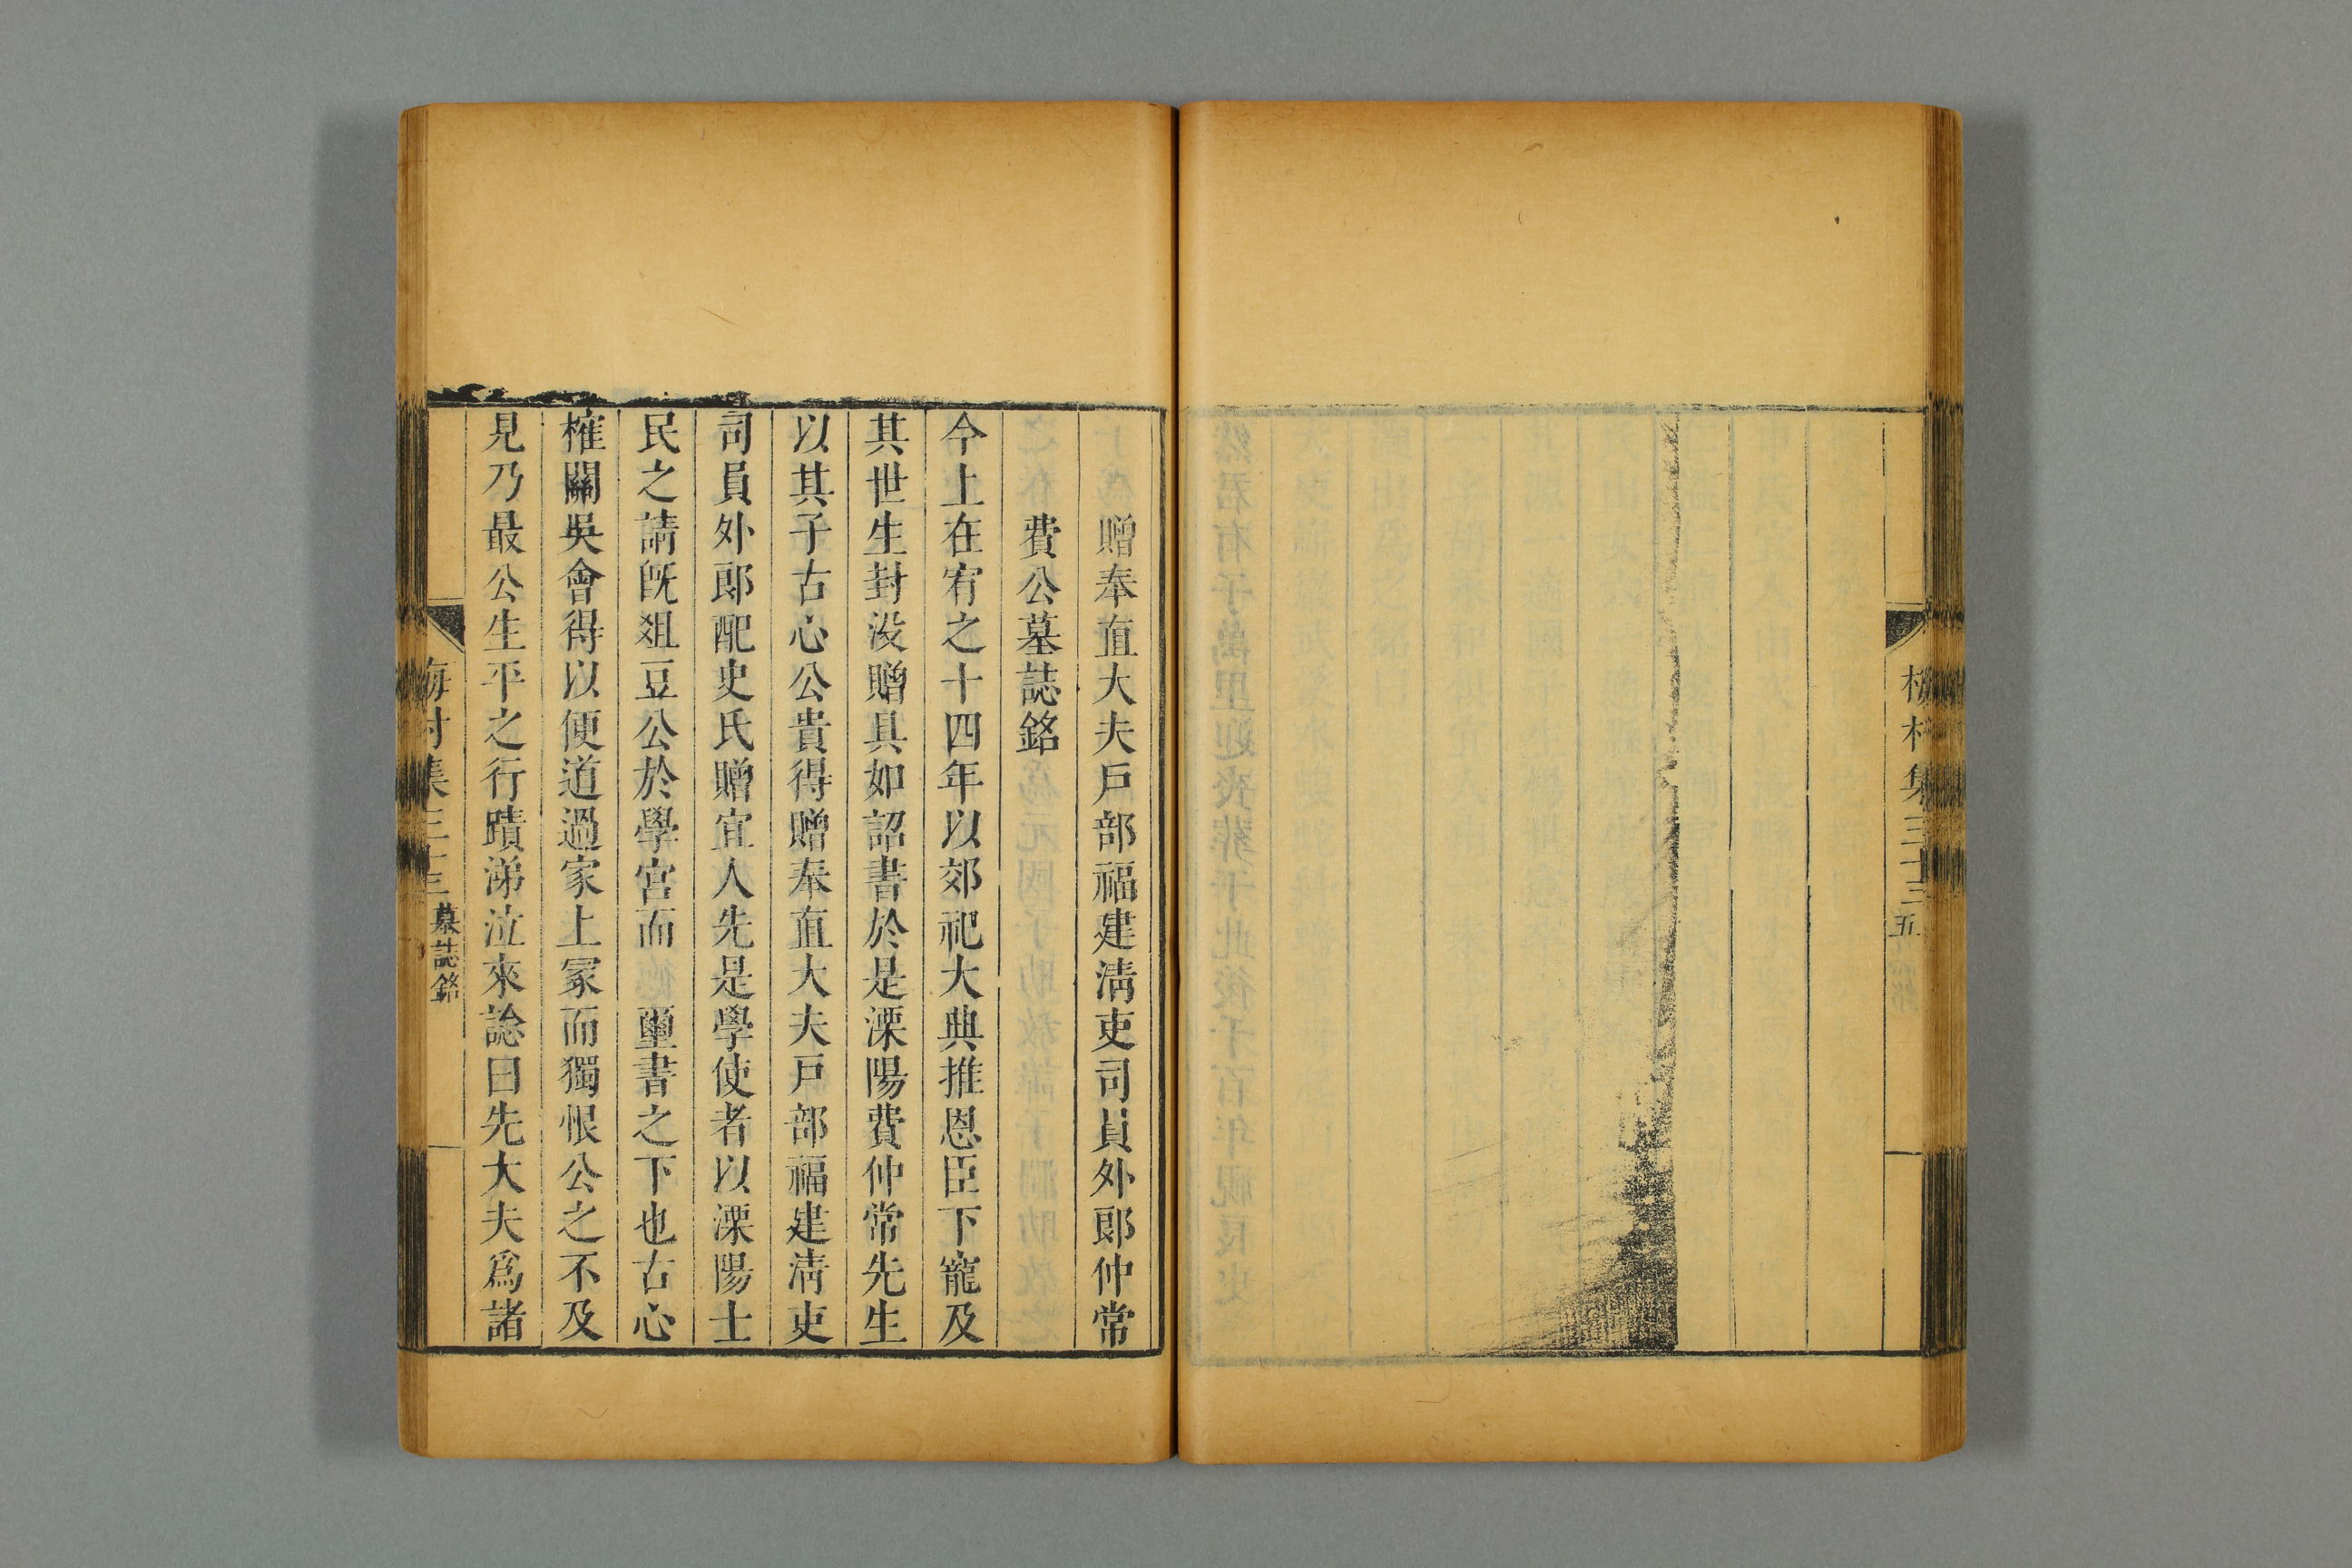 梅村集三十三
五
贈奉直大夫戶部福建淸吏司員外郎仲常
費公墓誌銘
今上在宥之十四年以郊祀大典推恩臣下寵及
其世生封没贈具如詔書於是溧陽費仲常先生
以其子古心公貴得贈奉直大夫戶部福建淸吏
司員外郎配史氏贈宜人先是學使者以溧陽士
民之請旣俎豆公於學宮而 璽書之下也古心
榷關吳會得以便道過家上冡而獨恨公之不及
見乃最公生平之行蹟涕泣來諗曰先大夫爲諸
梅村集三十三
墓誌銘